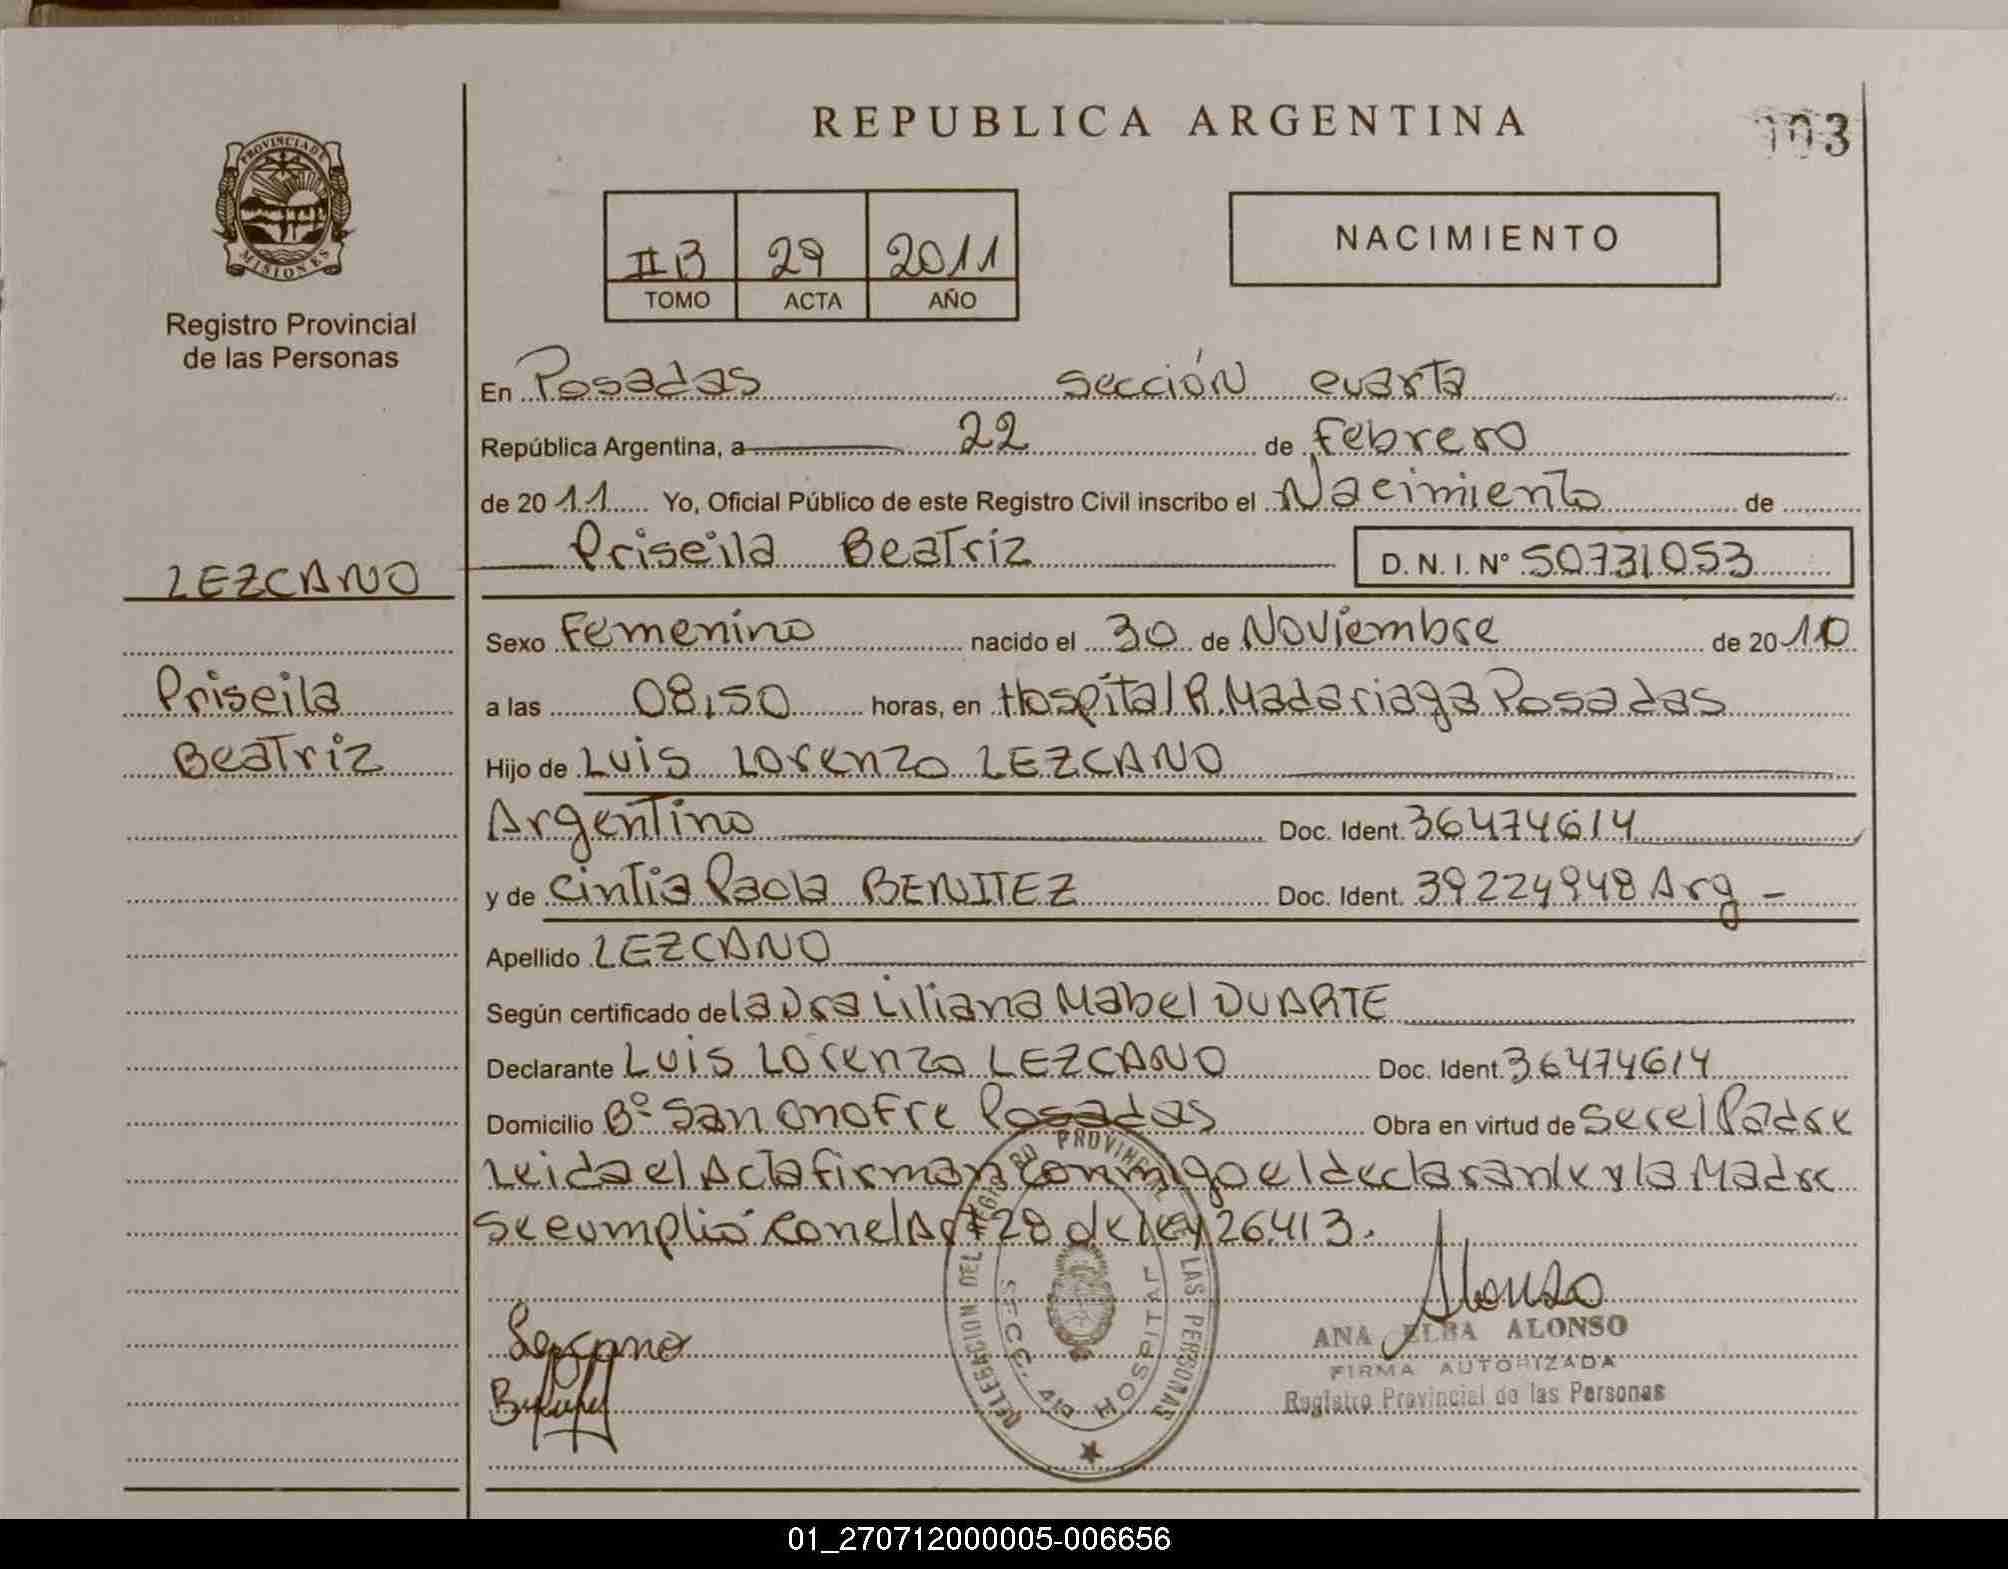 REPUBLICA ARGENTINA
103
PROVINCIA DE MISIONES
Registro Provincial
de las Personas
IIB 29 2011
TOMO ACTA AÑO
NACIMIENTO
En Posadas sección cuarta
República Argentina, a 22 de Febrero
de 2011 Yo, Oficial Público de este Registro Civil inscribo el Nacimiento de
Priscila Beatriz D. N. I. Nº 50731053
LEZCANO
Priscila
Beatriz
Sexo Femenino nacido el 30 de Noviembre de 2010
a las 08,50 horas, en Hospital R. Madariaga Posadas
Hijo de Luis Lorenzo LEZCANO
Argentino Doc. Ident. 36474614
y de Cintia Paola BENITEZ Doc. Ident. 39224948 Arg -
Apellido LEZCANO
Según certificado de Laura Liliana Mabel DUARTE
Declarante Luis Lorenzo LEZCANO Doc. Ident. 36474614
Domicilio Bº San Onofre Posadas Obra en virtud de Ser el Padre
Leida el Acta firman conmigo el declarante y la Madre
Se cumplió con el Art 28 de ley 26413.
Lezcano
Alonso
ANA ELBA ALONSO
FIRMA AUTORIZADA
Registro Provincial de las Personas
DELEGACION DEL REGISTRO PROVINCIAL DE LAS PERSONAS
SECC. 4ta HOSPITAL
01_270712000005-006656